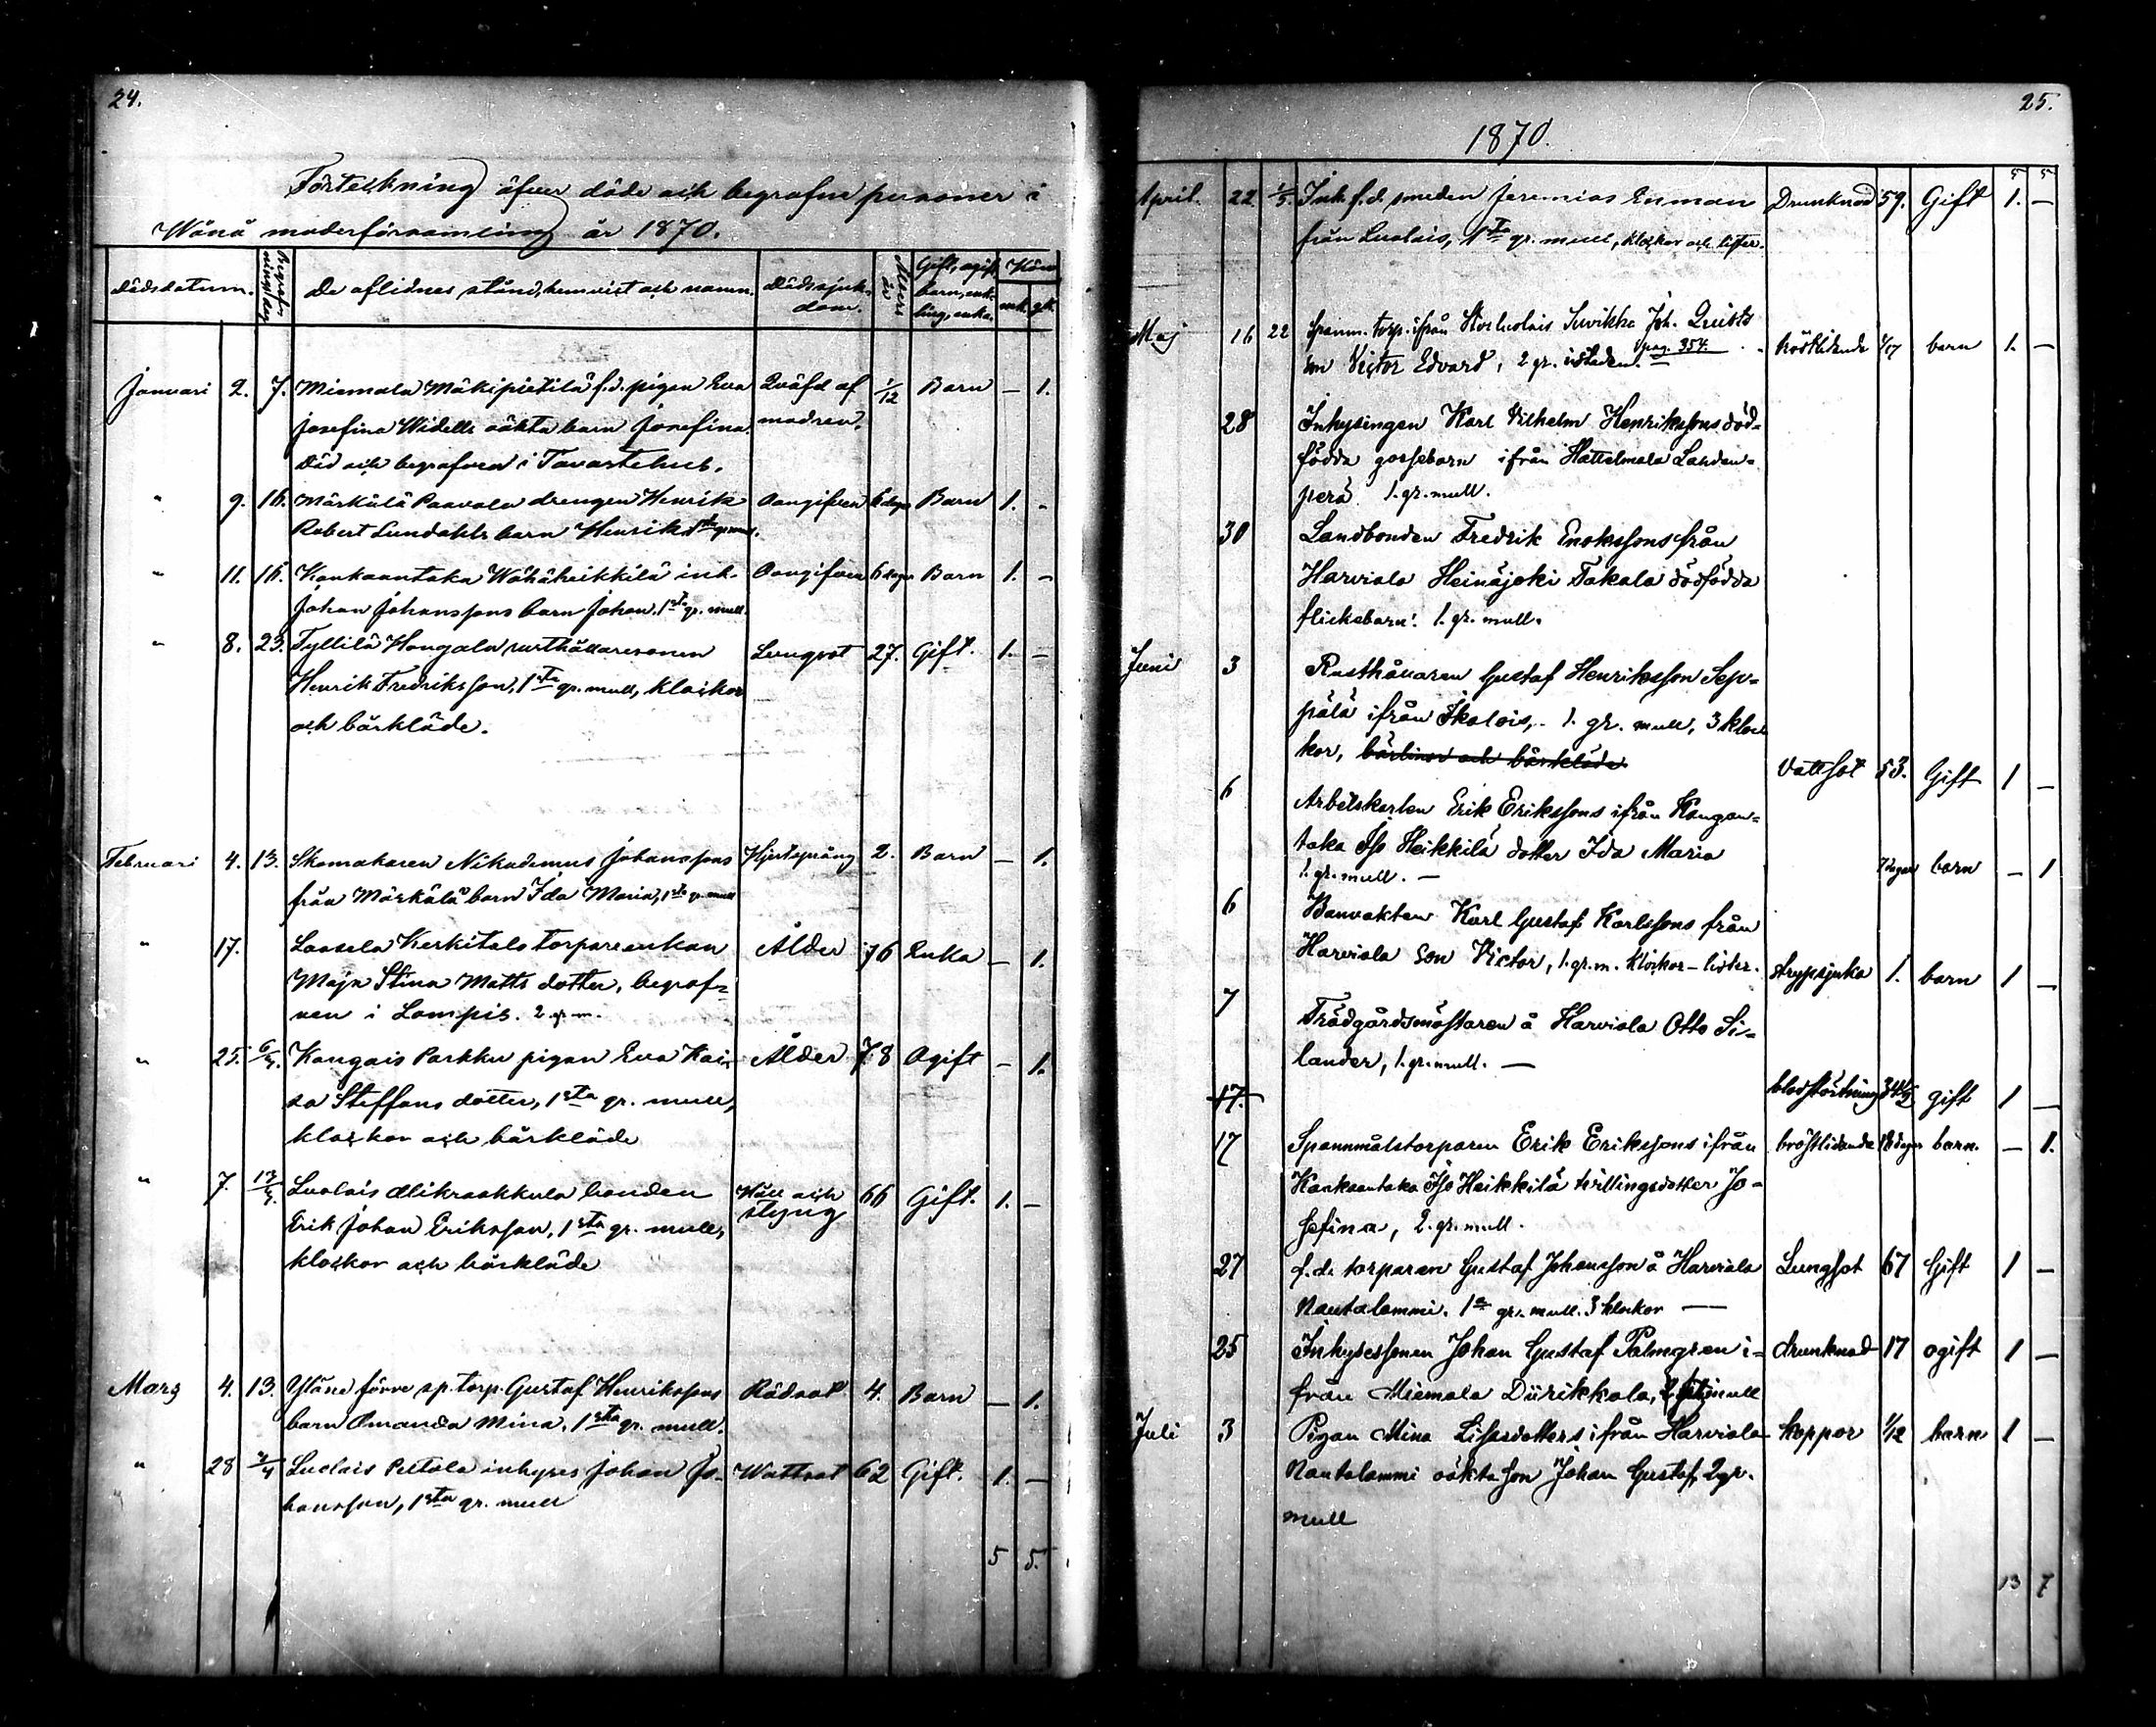 24.
Förteckning öfver döde och begrafne personer i
Wånå moderförsamling år 1870.
Dödsdatum. De aflidnes stånd, hemvist och namn. Dödssjukdom. Ålders år Gift, ogift, barn, enkling, enka. Kön mk. qk.
Januari 2. 7. Miemala Mäkipietilä f.d. pigan Eva Qväfd af 1/12 Barn – 1.
Josefina Widells oäkta barn Josefina. modren.
Död och begrafven i Tavastehus.
" 9. 16. Märkälä Paavola drengen Henrik Oangifven 6 dagar Barn 1. -
Robert Lundahls barn Henrik 1sta gr. mull.
" 11. 16. Kankaantaka Wähäheikkilä inh. Oangifven 6 dagar Barn 1. –
Johan Johanssons barn Johan. 1sta gr. mull.
" 8. 23. Tyllilä Hongala rusthållaresonen Lungsot 27. Gift. 1. –
Henrik Fredriksson, 1sta gr. mull, klockor
och bårkläde.
Februari 4. 13. Skomakaren Nikodemus Johanssons Hjertsprång 2. Barn – 1.
från Märkälä barn Ida Maria, 1sta gr. mull
" 17. Laasela Kerkitalo torpareenkan Ålder 76 Enka – 1.
Maja Stina Matts dotter, begraf-
ven i Lampis. 2 gr. m.
" 25. 6/3. Kangais Parkku pigan Eva Kai- Ålder 78 Ogift – 1.
sa Steffans dotter, 1sta gr. mull,
klockor och bårkläde
" 7. 13/3. Luolais Alikraakkula bonden Håll och 66 Gift. 1. –
Erik Johan Eriksson, 1sta gr. mull, styng
klockor och bårkläde
Mars 4. 13. Yläne förre sp. torp. Gustaf Henrikssons Rödsot 4. Barn – 1.
barn Amanda Mina, 1sta gr. mull.
" 28 3/4 Luolais Peltola inhyses Johan Jo- Wattsot 62 Gift. 1. –
hansson, 1sta gr. mull
5 5.
25.
1870.
5 5
April. 22 1/5. Inh. f.d. smeden Jeremias Enman Drunknad 59. Gift 1. –
från Luolais, 1sta gr. mull, klockor och lister.
Maj 16 22 Spannm. torp. ifrån Luolais Suvikka Joh. Qvists bröstlidande barn 1. –
son Victor Edvard, 2 gr. pag. 354.
28 Inhysingen Karl Vilhelm Henrikssons död-
födda gossebarn ifrån Hattelmala Lahden-
perä 1. gr. mull.
30 Landbonden Fredrik Enokssons från
Harviala Heinäjoki Takala dödfödda
flickebarn. 1. gr. mull.
Juni 3 Rusthållaren Gustaf Henriksson Sep-
pälä ifrån Ikalois, 1. gr. mull, 3 kloc-
kor, bårlinor och bårkläde Vattsot 53. Gift 1 –
6 Arbetskarlen Erik Erikssons ifrån Kangan-
taka Iso Heikkilä dotter Ida Maria 7 dagar barn – 1
1. gr. mull. –
6 Banvakten Karl Gustaf Karlssons från
Harviala son Victor, 1. gr. m. klockor – lister. strypsjuka 1. barn 1 –
7 Trädgårdsmästaren å Harviala Otto Si-
lander, 1. gr. mull. –
17. blodstörtning gift 1 –
17 Spannmålstorparen Erik Erikssons ifrån bröstlidande dagar barn. – 1.
Kankaantaka Iso Heikkilä tvillingsdotter Jo-
sefina, 2. gr. mull.
27 f.d. torparen Gustaf Johansson å Harviala Lungsot 67 Gift 1 –
Nautalammi. 1a gr. mull. 3 klockor –
25 Inhysessonen Johan Gustaf Palmgren i- drunknad 17 ogift 1 –
från Miemala Diirikkala, mull
Juli 3 Pigan Mina Lisasdotters ifrån Harviala koppor 1/12 barn 1 –
Nautalammi oäkta son Johan Gustaf, 2 gr.
mull
13 7